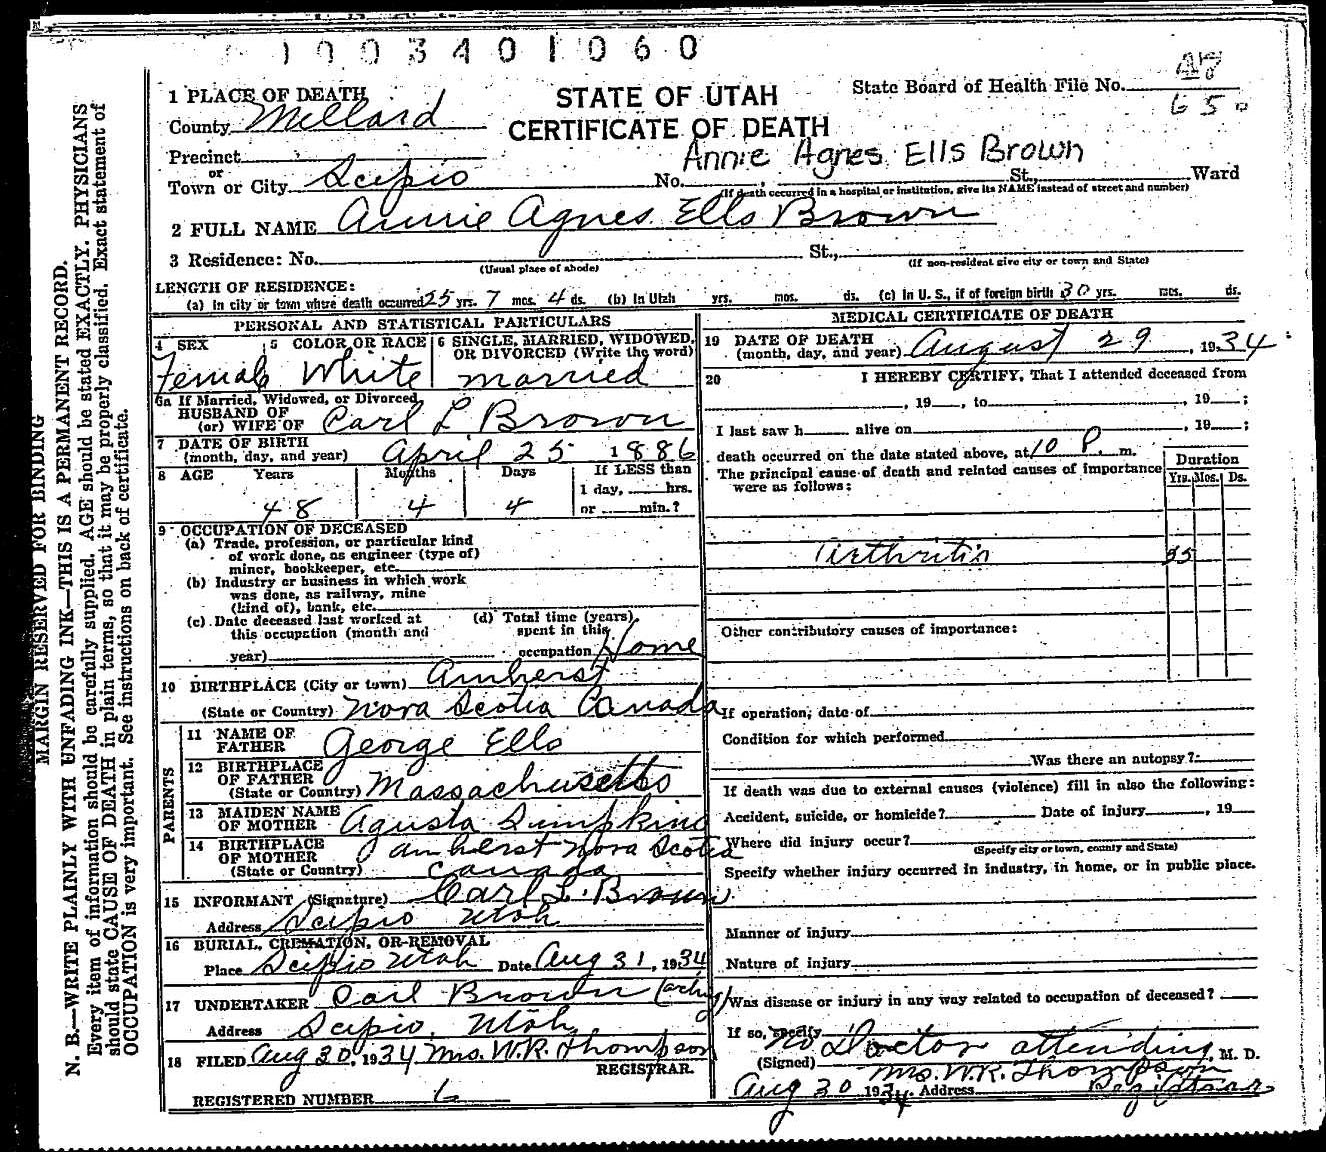 1003401060
47
State Board of Health File No.
650
1 PLACE OF DEATH
County Millard
STATE OF UTAH
CERTIFICATE OF DEATH
Precinct
or
Annie Agnes Ells Brown
Town or City Scipio No. St., Ward
(If death occurred in a hospital or institution, give its NAME instead of street and number)
2 FULL NAME Annie Agnes Ells Brown
3 Residence: No. St.,
(Usual place of abode) (If non-resident give city or town and State)
LENGTH OF RESIDENCE:
(a) In city or town where death occurred 25 yrs. 7 mos. 4 ds. (b) In Utah yrs. mos. ds. (c) In U. S., if of foreign birth 30 yrs. mos. ds.
PERSONAL AND STATISTICAL PARTICULARS
4 SEX 5 COLOR OR RACE 6 SINGLE, MARRIED, WIDOWED,
OR DIVORCED (Write the word)
Female White married
6a If Married, Widowed, or Divorced
HUSBAND OF
(or) WIFE OF Carl L Brown
7 DATE OF BIRTH
(month, day, and year) April 25 1886
8 AGE Years Months Days If LESS than
1 day, hrs.
48 4 4 or min.?
9 OCCUPATION OF DECEASED
(a) Trade, profession, or particular kind
of work done, as engineer (type of)
miner, bookkeeper, etc.
(b) Industry or business in which work
was done, as railway, mine
(kind of), bank, etc.
(c) Date deceased last worked at (d) Total time (years)
this occupation (month and spent in this
year) occupation Home
10 BIRTHPLACE (City or town) Amherst
(State or Country) Nova Scotia Canada
PARENTS
11 NAME OF
FATHER George Ells
12 BIRTHPLACE
OF FATHER
(State or Country) Massachusetts
13 MAIDEN NAME
OF MOTHER Agusta Simpkins
14 BIRTHPLACE
OF MOTHER Amherst Nova Scotia
(State or Country) Canada
15 INFORMANT (Signature) Carl L. Brown
Address Scipio Utah
16 BURIAL, CREMATION, OR REMOVAL
Place Scipio Utah Date Aug 31, 1934
17 UNDERTAKER Carl Brown (acting)
Address Scipio, Utah
18 FILED Aug 30, 1934 Mrs. W.R. Thompson
REGISTRAR.
REGISTERED NUMBER
MEDICAL CERTIFICATE OF DEATH
19 DATE OF DEATH
(month, day, and year) August 29, 1934
20 I HEREBY CERTIFY, That I attended deceased from
, 19 , to , 19 ;
I last saw h alive on , 19 ;
death occurred on the date stated above, at 10 P. m.
The principal cause of death and related causes of importance
were as follows:
Duration
Yrs. Mos. Ds.
Arthritis
Other contributory causes of importance:
If operation, date of
Condition for which performed
Was there an autopsy?
If death was due to external causes (violence) fill in also the following:
Accident, suicide, or homicide? Date of injury , 19
Where did injury occur?
(Specify city or town, county and State)
Specify whether injury occurred in industry, in home, or in public place.
Manner of injury
Nature of injury
Was disease or injury in any way related to occupation of deceased?
If so, specify
No Doctor attending
(Signed) , M. D.
Mrs. W.R. Thompson
Aug 30 1934. Address Registrar
MARGIN RESERVED FOR BINDING
N. B.—WRITE PLAINLY WITH UNFADING INK—THIS IS A PERMANENT RECORD.
Every item of information should be carefully supplied. AGE should be stated EXACTLY. PHYSICIANS
should state CAUSE OF DEATH in plain terms, so that it may be properly classified. Exact statement of
OCCUPATION is very important. See instructions on back of certificate.